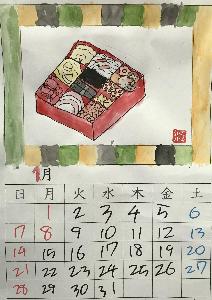 1月
日 月 火 水 木 金 土
1 2 3 4 5 6
7 8 9 10 11 12 13
14 15 16 17 18 19 20
21 22 23 24 25 26 27
28 29 30 31